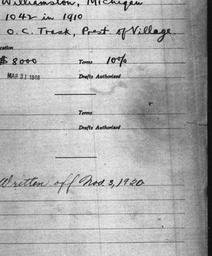 Williamston, Michigan
1042 in 1910
O. C. Trask, Prest of Village
$ 8000 Terms 10%
MAR 31 Drafts Authorized
Terms
Drafts Authorized
Written off Nov 3, 1920